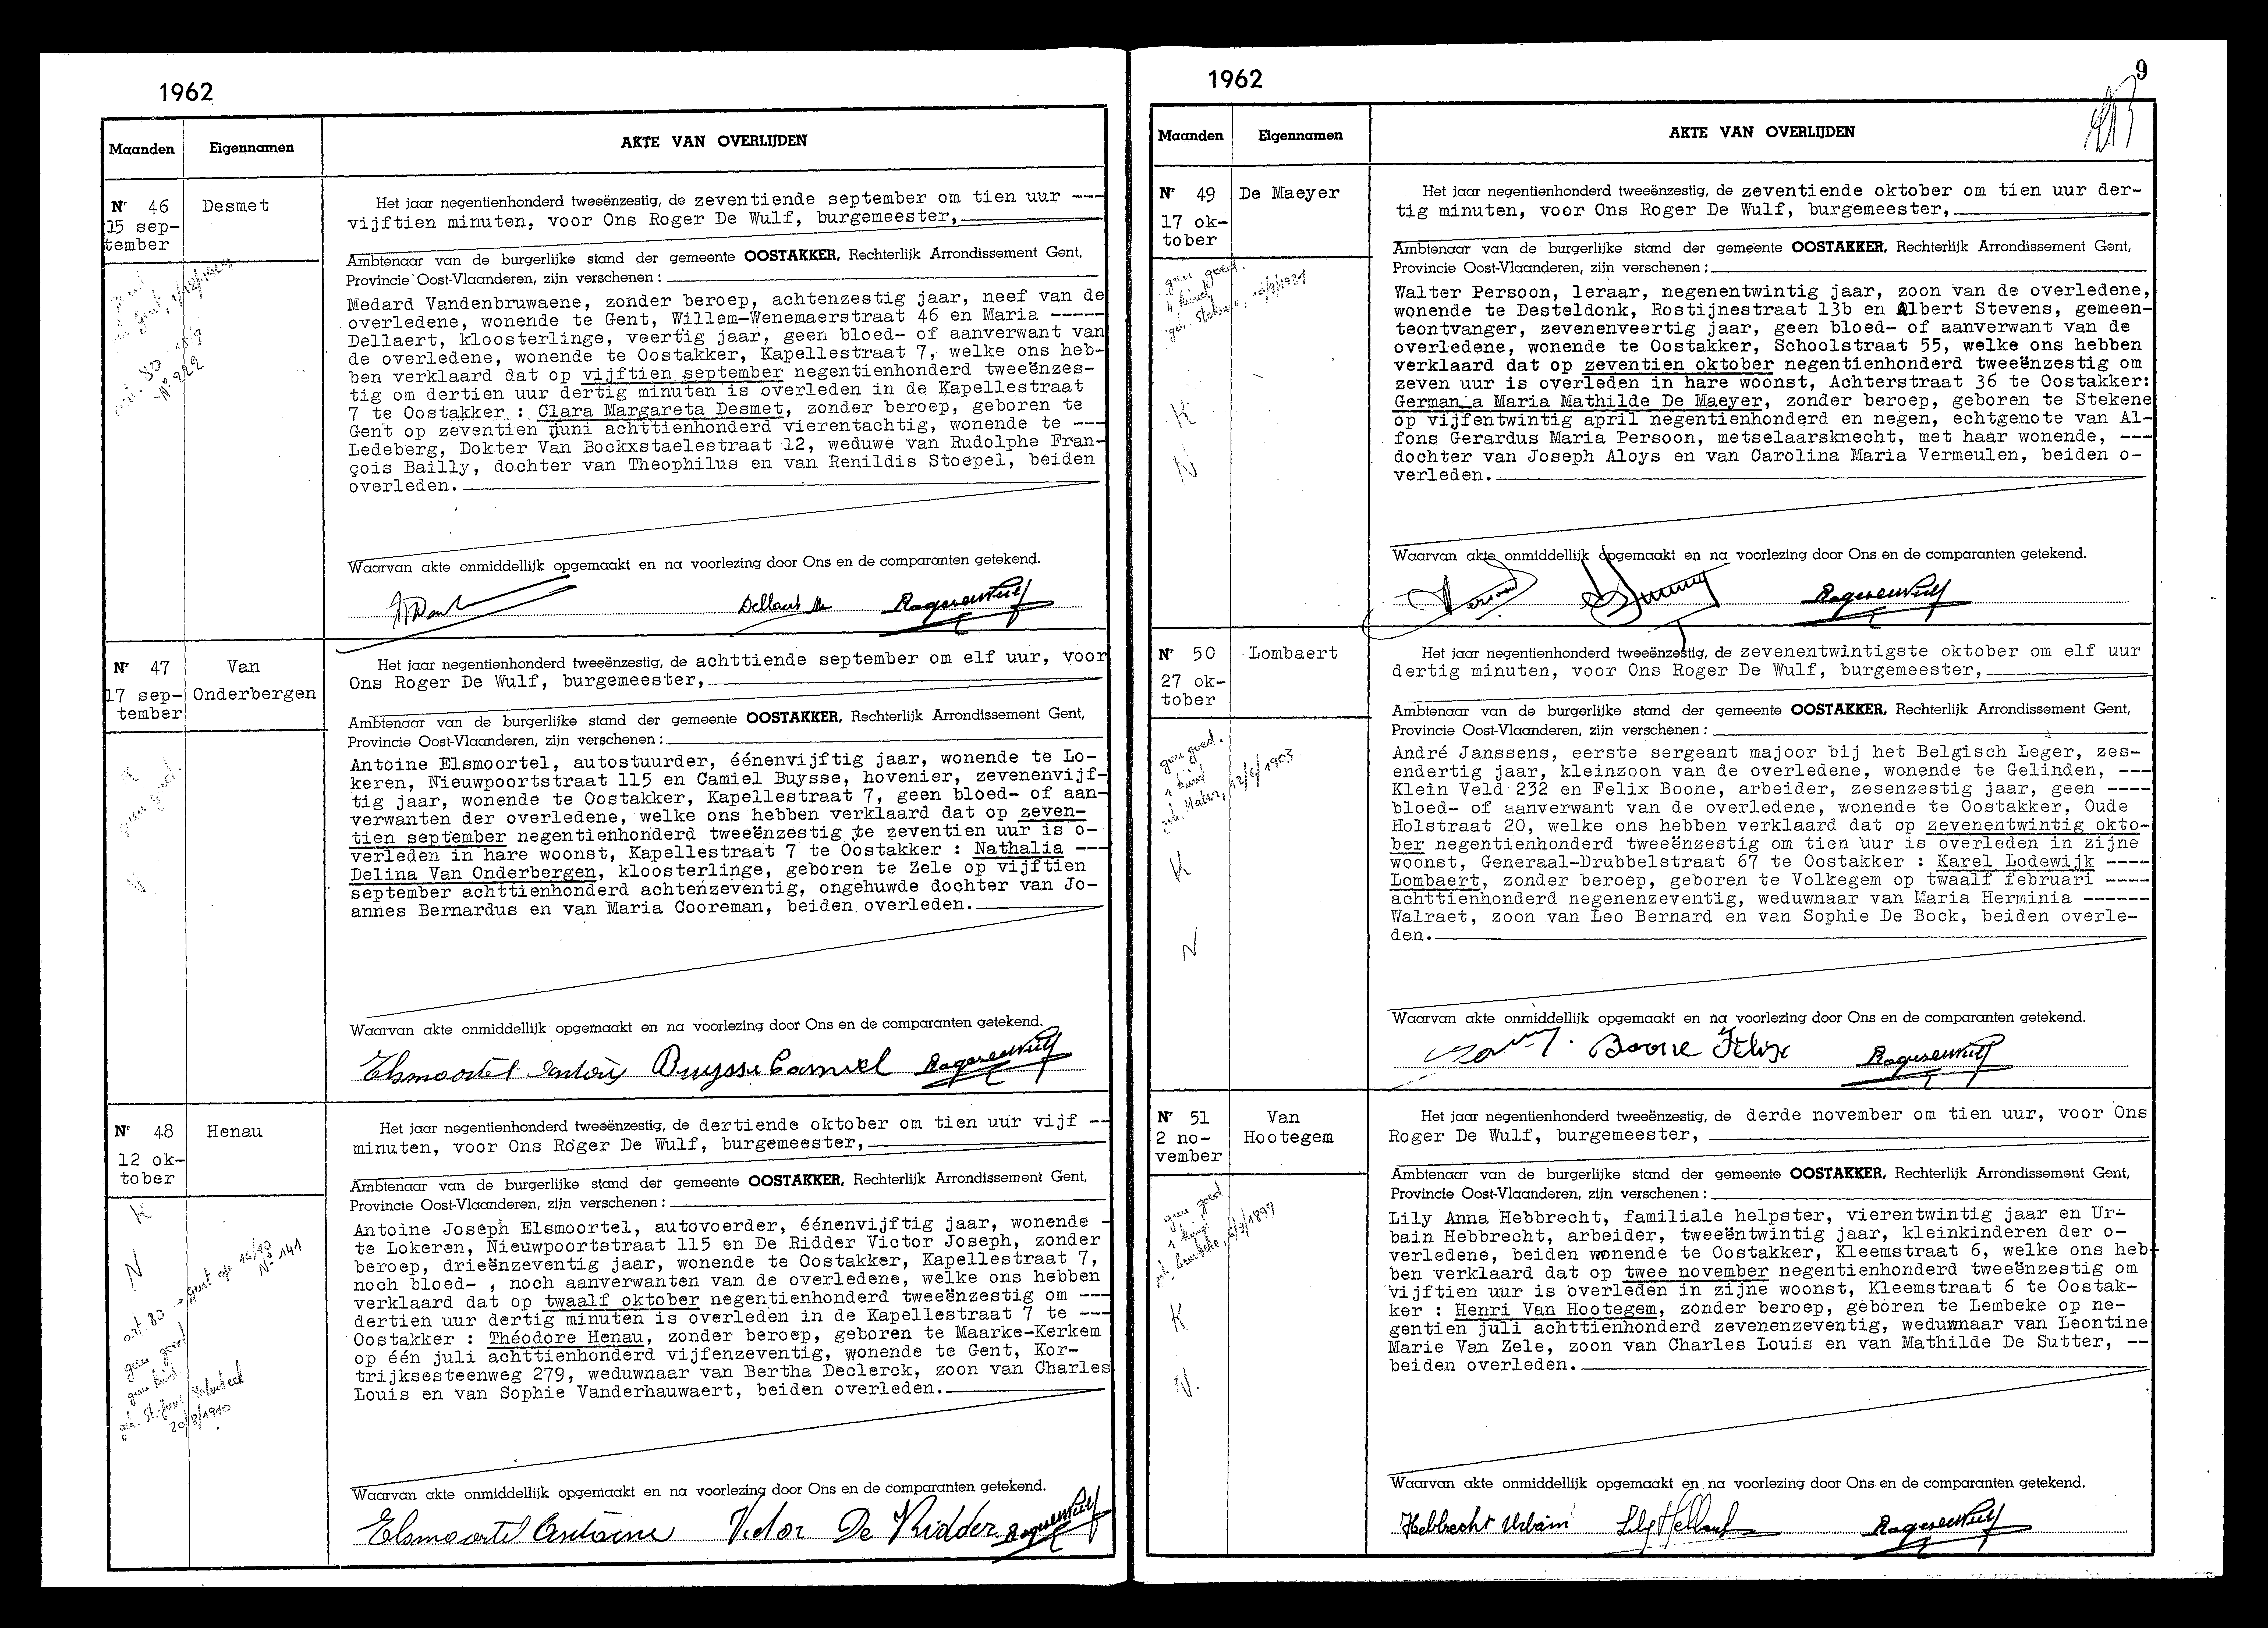 1962
Maanden Eigennamen AKTE VAN OVERLIJDEN
Nr 46 Desmet
15 sep-
tember
Het jaar negentienhonderd tweeënzestig, de zeventiende september om tien uur ---
vijftien minuten, voor Ons Roger De Wulf, burgemeester,
Ambtenaar van de burgerlijke stand der gemeente OOSTAKKER, Rechterlijk Arrondissement Gent,
Provincie Oost-Vlaanderen, zijn verschenen :
Medard Vandenbruwaene, zonder beroep, achtenzestig jaar, neef van de
overledene, wonende te Gent, Willem-Wenemaerstraat 46 en Maria -----
Dellaert, kloosterlinge, veertig jaar, geen bloed- of aanverwant van
de overledene, wonende te Oostakker, Kapellestraat 7, welke ons heb-
ben verklaard dat op vijftien september negentienhonderd tweeënzes-
tig om dertien uur dertig minuten is overleden in de Kapellestraat
7 te Oostakker : Clara Margareta Desmet, zonder beroep, geboren te
Gent op zeventien juni achttienhonderd vierentachtig, wonende te ---
Ledeberg, Dokter Van Bockxstaelestraat 12, weduwe van Rudolphe Fran-
çois Bailly, dochter van Theophilus en van Renildis Stoepel, beiden
overleden.
N° 222
Waarvan akte onmiddellijk opgemaakt en na voorlezing door Ons en de comparanten getekend.
Dellaert M
Nr 47 Van
Onderbergen
17 sep-
tember
Het jaar negentienhonderd tweeënzestig, de achttiende september om elf uur, voor
Ons Roger De Wulf, burgemeester,
Ambtenaar van de burgerlijke stand der gemeente OOSTAKKER, Rechterlijk Arrondissement Gent,
Provincie Oost-Vlaanderen, zijn verschenen :
Antoine Elsmoortel, autostuurder, éénenvijftig jaar, wonende te Lo-
keren, Nieuwpoortstraat 115 en Camiel Buysse, hovenier, zevenenvijf-
tig jaar, wonende te Oostakker, Kapellestraat 7, geen bloed- of aan-
verwanten der overledene, welke ons hebben verklaard dat op zeven-
tien september negentienhonderd tweeënzestig te zeventien uur is o-
verleden in hare woonst, Kapellestraat 7 te Oostakker : Nathalia ---
Delina Van Onderbergen, kloosterlinge, geboren te Zele op vijftien
september achttienhonderd achtenzeventig, ongehuwde dochter van Jo-
annes Bernardus en van Maria Cooreman, beiden overleden.
geen goed.
Waarvan akte onmiddellijk opgemaakt en na voorlezing door Ons en de comparanten getekend.
Elsmoortel Antoine Buysse Camiel
Nr 48 Henau
12 ok-
tober
Het jaar negentienhonderd tweeënzestig, de dertiende oktober om tien uur vijf --
minuten, voor Ons Roger De Wulf, burgemeester,
Ambtenaar van de burgerlijke stand der gemeente OOSTAKKER, Rechterlijk Arrondissement Gent,
Provincie Oost-Vlaanderen, zijn verschenen :
Antoine Joseph Elsmoortel, autovoerder, éénenvijftig jaar, wonende -
te Lokeren, Nieuwpoortstraat 115 en De Ridder Victor Joseph, zonder
beroep, drieënzeventig jaar, wonende te Oostakker, Kapellestraat 7,
noch bloed- , noch aanverwanten van de overledene, welke ons hebben
verklaard dat op twaalf oktober negentienhonderd tweeënzestig om ---
dertien uur dertig minuten is overleden in de Kapellestraat 7 te ---
Oostakker : Théodore Henau, zonder beroep, geboren te Maarke-Kerkem
op één juli achttienhonderd vijfenzeventig, wonende te Gent, Kor-
trijksesteenweg 279, weduwnaar van Bertha Declerck, zoon van Charles
Louis en van Sophie Vanderhauwaert, beiden overleden.
K
N
art 80 - Gent op 16/10
N° 141
geen goed
geen kind
20/8/1910
Waarvan akte onmiddellijk opgemaakt en na voorlezing door Ons en de comparanten getekend.
Elsmoortel Antoine Victor De Ridder
1962
9
Maanden Eigennamen AKTE VAN OVERLIJDEN
Nr 49 De Maeyer
17 ok-
tober
Het jaar negentienhonderd tweeënzestig, de zeventiende oktober om tien uur der-
tig minuten, voor Ons Roger De Wulf, burgemeester,
Ambtenaar van de burgerlijke stand der gemeente OOSTAKKER, Rechterlijk Arrondissement Gent,
Provincie Oost-Vlaanderen, zijn verschenen :
Walter Persoon, leraar, negenentwintig jaar, zoon van de overledene,
wonende te Desteldonk, Rostijnestraat 13b en Albert Stevens, gemeen-
teontvanger, zevenenveertig jaar, geen bloed- of aanverwant van de
overledene, wonende te Oostakker, Schoolstraat 55, welke ons hebben
verklaard dat op zeventien oktober negentienhonderd tweeënzestig om
zeven uur is overleden in hare woonst, Achterstraat 36 te Oostakker:
Germana Maria Mathilde De Maeyer, zonder beroep, geboren te Stekene
op vijfentwintig april negentienhonderd en negen, echtgenote van Al-
fons Gerardus Maria Persoon, metselaarsknecht, met haar wonende, ---
dochter van Joseph Aloys en van Carolina Maria Vermeulen, beiden o-
verleden.
geen goed.
K
N
Waarvan akte onmiddellijk opgemaakt en na voorlezing door Ons en de comparanten getekend.
Nr 50 Lombaert
27 ok-
tober
Het jaar negentienhonderd tweeënzestig, de zevenentwintigste oktober om elf uur
dertig minuten, voor Ons Roger De Wulf, burgemeester,
Ambtenaar van de burgerlijke stand der gemeente OOSTAKKER, Rechterlijk Arrondissement Gent,
Provincie Oost-Vlaanderen, zijn verschenen :
André Janssens, eerste sergeant majoor bij het Belgisch Leger, zes-
endertig jaar, kleinzoon van de overledene, wonende te Gelinden, ---
Klein Veld 232 en Felix Boone, arbeider, zesenzestig jaar, geen ----
bloed- of aanverwant van de overledene, wonende te Oostakker, Oude
Holstraat 20, welke ons hebben verklaard dat op zevenentwintig okto-
ber negentienhonderd tweeënzestig om tien uur is overleden in zijne
woonst, Generaal-Drubbelstraat 67 te Oostakker : Karel Lodewijk ----
Lombaert, zonder beroep, geboren te Volkegem op twaalf februari ----
achttienhonderd negenenzeventig, weduwnaar van Maria Herminia ------
Walraet, zoon van Leo Bernard en van Sophie De Bock, beiden overle-
den.
geen goed.
1 kind
12/6/1903
K
N
Waarvan akte onmiddellijk opgemaakt en na voorlezing door Ons en de comparanten getekend.
Boone Felix
Nr 51 Van
Hootegem
2 no-
vember
Het jaar negentienhonderd tweeënzestig, de derde november om tien uur, voor Ons
Roger De Wulf, burgemeester,
Ambtenaar van de burgerlijke stand der gemeente OOSTAKKER, Rechterlijk Arrondissement Gent,
Provincie Oost-Vlaanderen, zijn verschenen :
Lily Anna Hebbrecht, familiale helpster, vierentwintig jaar en Ur-
bain Hebbrecht, arbeider, tweeëntwintig jaar, kleinkinderen der o-
verledene, beiden wonende te Oostakker, Kleemstraat 6, welke ons heb-
ben verklaard dat op twee november negentienhonderd tweeënzestig om
vijftien uur is overleden in zijne woonst, Kleemstraat 6 te Oostak-
ker : Henri Van Hootegem, zonder beroep, geboren te Lembeke op ne-
gentien juli achttienhonderd zevenenzeventig, weduwnaar van Leontine
Marie Van Zele, zoon van Charles Louis en van Mathilde De Sutter, --
beiden overleden.
geen goed
1 kind
K
N.
Waarvan akte onmiddellijk opgemaakt en na voorlezing door Ons en de comparanten getekend.
Hebbrecht Urbain Lily Hebbrecht